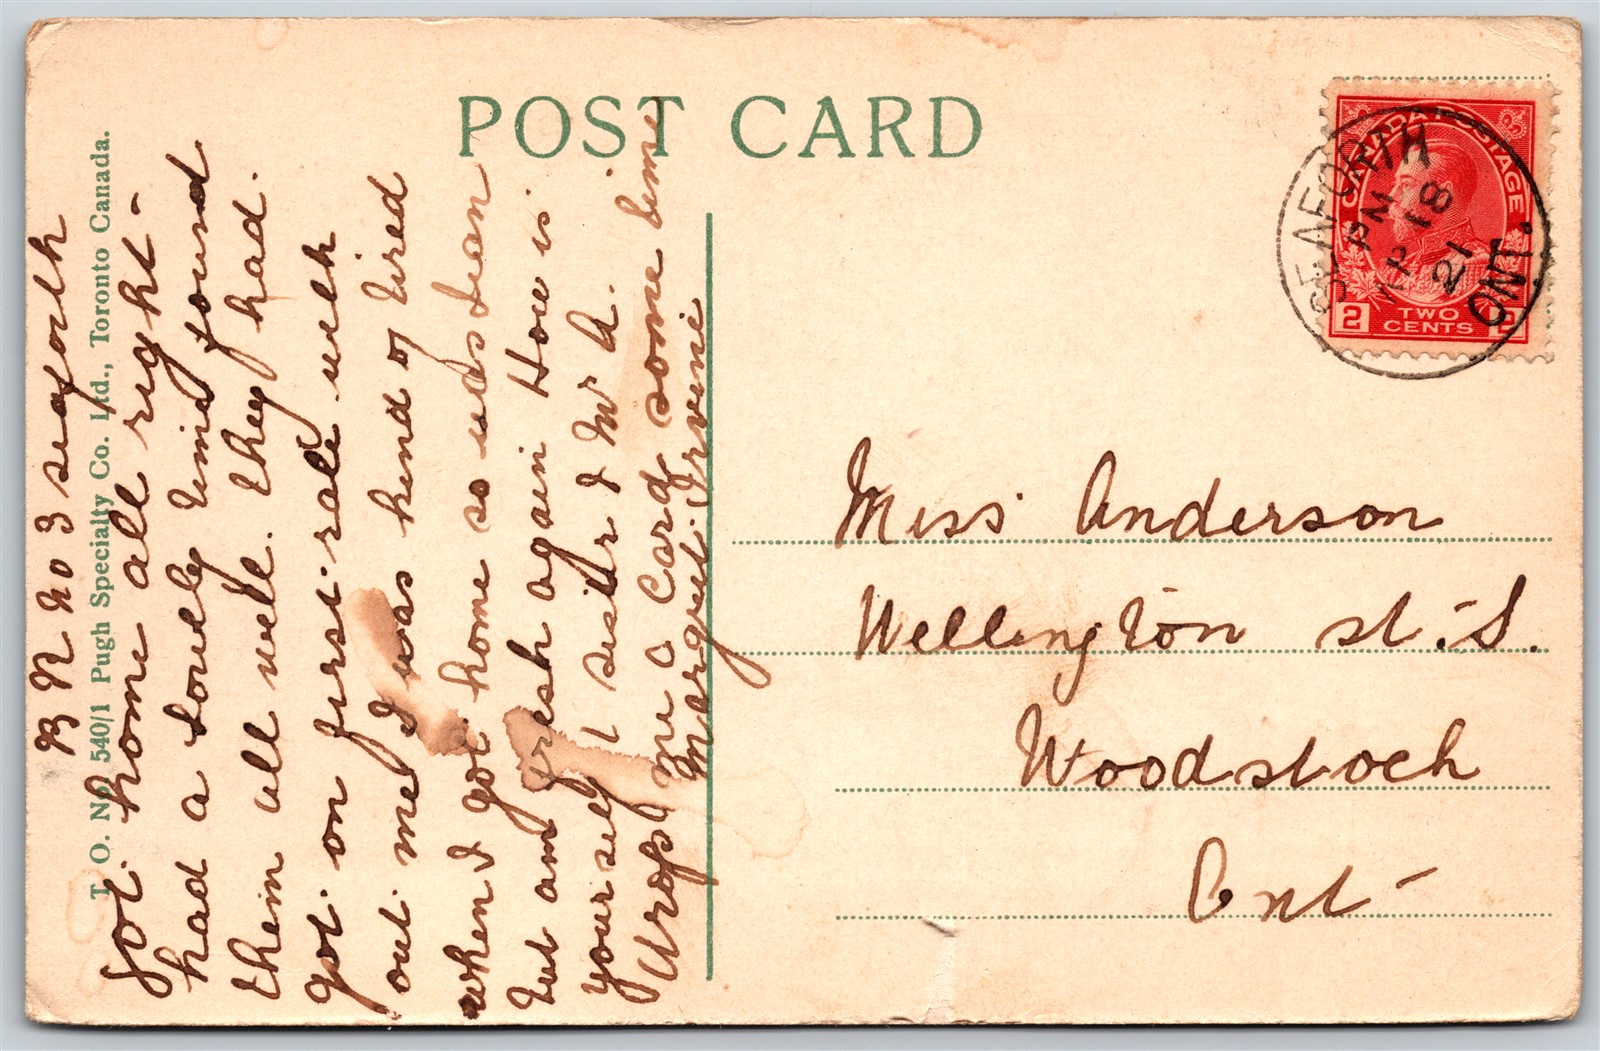 POST CARD
T. O. No. 540/1 Pugh Specialty Co. Ltd., Toronto Canada.
R R No 3 seaforth
got home all right -
had a lovely time found
them all well. they had.
got on first-rate with
out me I was kind of tired
when I got home so was Jean
but am fresh again How is
your self & sister & Mr A.
Drop me a Card some time
Margret Irvine
CANADA POSTAGE
2 TWO CENTS 2
SEAFORTH
PM
SP 18
21
ONT.
Miss Anderson
Wellington st. S.
Woodstock
Ont-